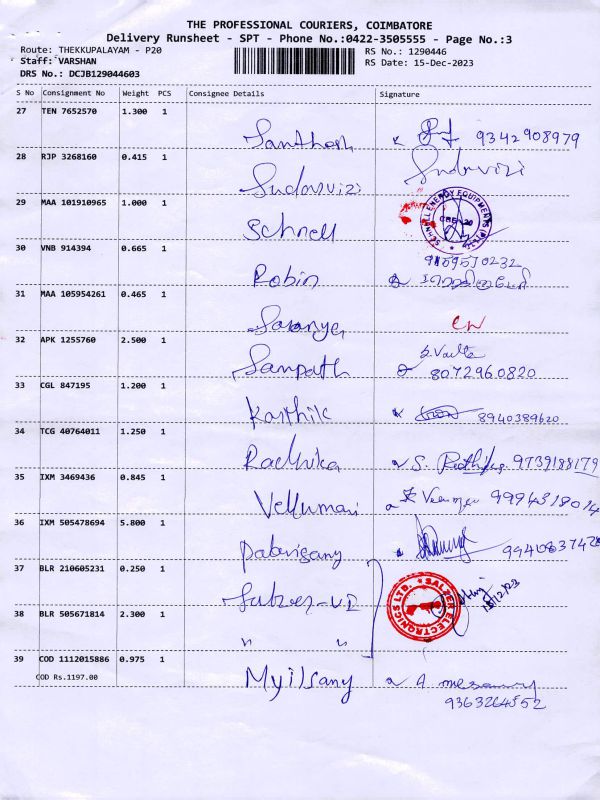 THE PROFESSIONAL COURIERS, COIMBATORE
Delivery Runsheet - SPT - Phone No.:0422-3505555 - Page No.:3
Route: THEKKUPALAYAM - P20 RS No.: 1290446
Staff: VARSHAN RS Date: 15-Dec-2023
DRS No.: DCJB129044603
S No Consignment No Weight PCS Consignee Details Signature
27 TEN 7652570 1.300 1
Santhosh 9342908979
28 RJP 3268160 0.415 1
Sudarvizi Sudarvizi
29 MAA 101910965 1.000 1
Schnell
30 VNB 914394 0.665 1
9159570232
Robin
31 MAA 105954261 0.465 1
Saranya
32 APK 1255760 2.500 1
Sampath 8072960820
33 CGL 847195 1.200 1
Karthik 8940389620
34 TCG 40764011 1.250 1
Radhika S. 9739188179
35 IXM 3469436 0.845 1
Vellumani
36 IXM 505478694 5.800 1
37 BLR 210605231 0.250 1
SALZER ELECTRONICS LTD.
15/12/23
38 BLR 505671814 2.300 1
" "
39 COD 1112015886 0.975 1
COD Rs.1197.00
Myilsamy
9363264552